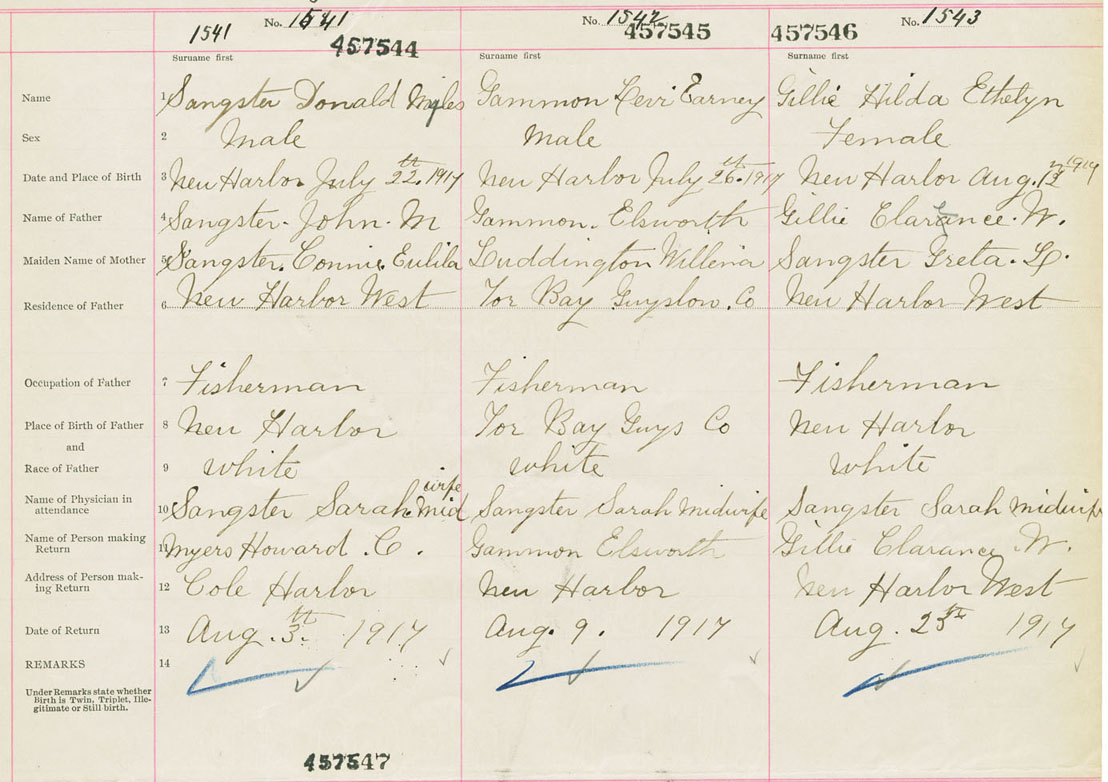 No. 1541 No. 1542 No. 1543
1541 457544 457545 457546
Surname first Surname first Surname first
Name 1 Sangster Donald Myles Gammon Levi Earney Gillie Hilda Ethelyn
Sex 2 Male Male Female
Date and Place of Birth 3 New Harbor July 22th 1917 New Harbor July 26th 1917 New Harbor Aug. 1917
Name of Father 4 Sangster John M Gammon Elsworth Gillie Clarence W.
Maiden Name of Mother 5 Sangster Connie Eulila Luddington Willena Sangster Greta L.
Residence of Father 6 New Harbor West Tor Bay Guysbow. Co New Harbor West
Occupation of Father 7 Fisherman Fisherman Fisherman
Place of Birth of Father 8 New Harbor Tor Bay Guys Co New Harbor
and
Race of Father 9 white white white
Name of Physician in
attendance 10 Sangster Sarah Midwife Sangster Sarah Midwife Sangster Sarah midwife
Name of Person making
Return 11 Myers Howard. C. Gammon Elsworth Gillie Clarance W.
Address of Person mak-
ing Return 12 Cole Harbor New Harbor New Harbor West
Date of Return 13 Aug. 3th 1917 Aug. 9. 1917 Aug. 25th 1917
REMARKS 14
Under Remarks state whether
Birth is Twin, Triplet, Ille-
gitimate or Still birth.
457547